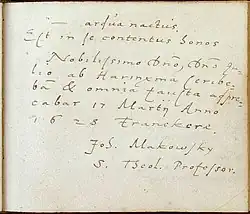 — ardua nactus.
Est in se contentus honos
Nobilissimo Dno, Dni Ju-
lio ab Harinxma scribe-
bā & omnia fausta appre-
cabar 17 Martij Anno
1623 Franckerę.
Joh. Makowsky
S. Theol. Professor.